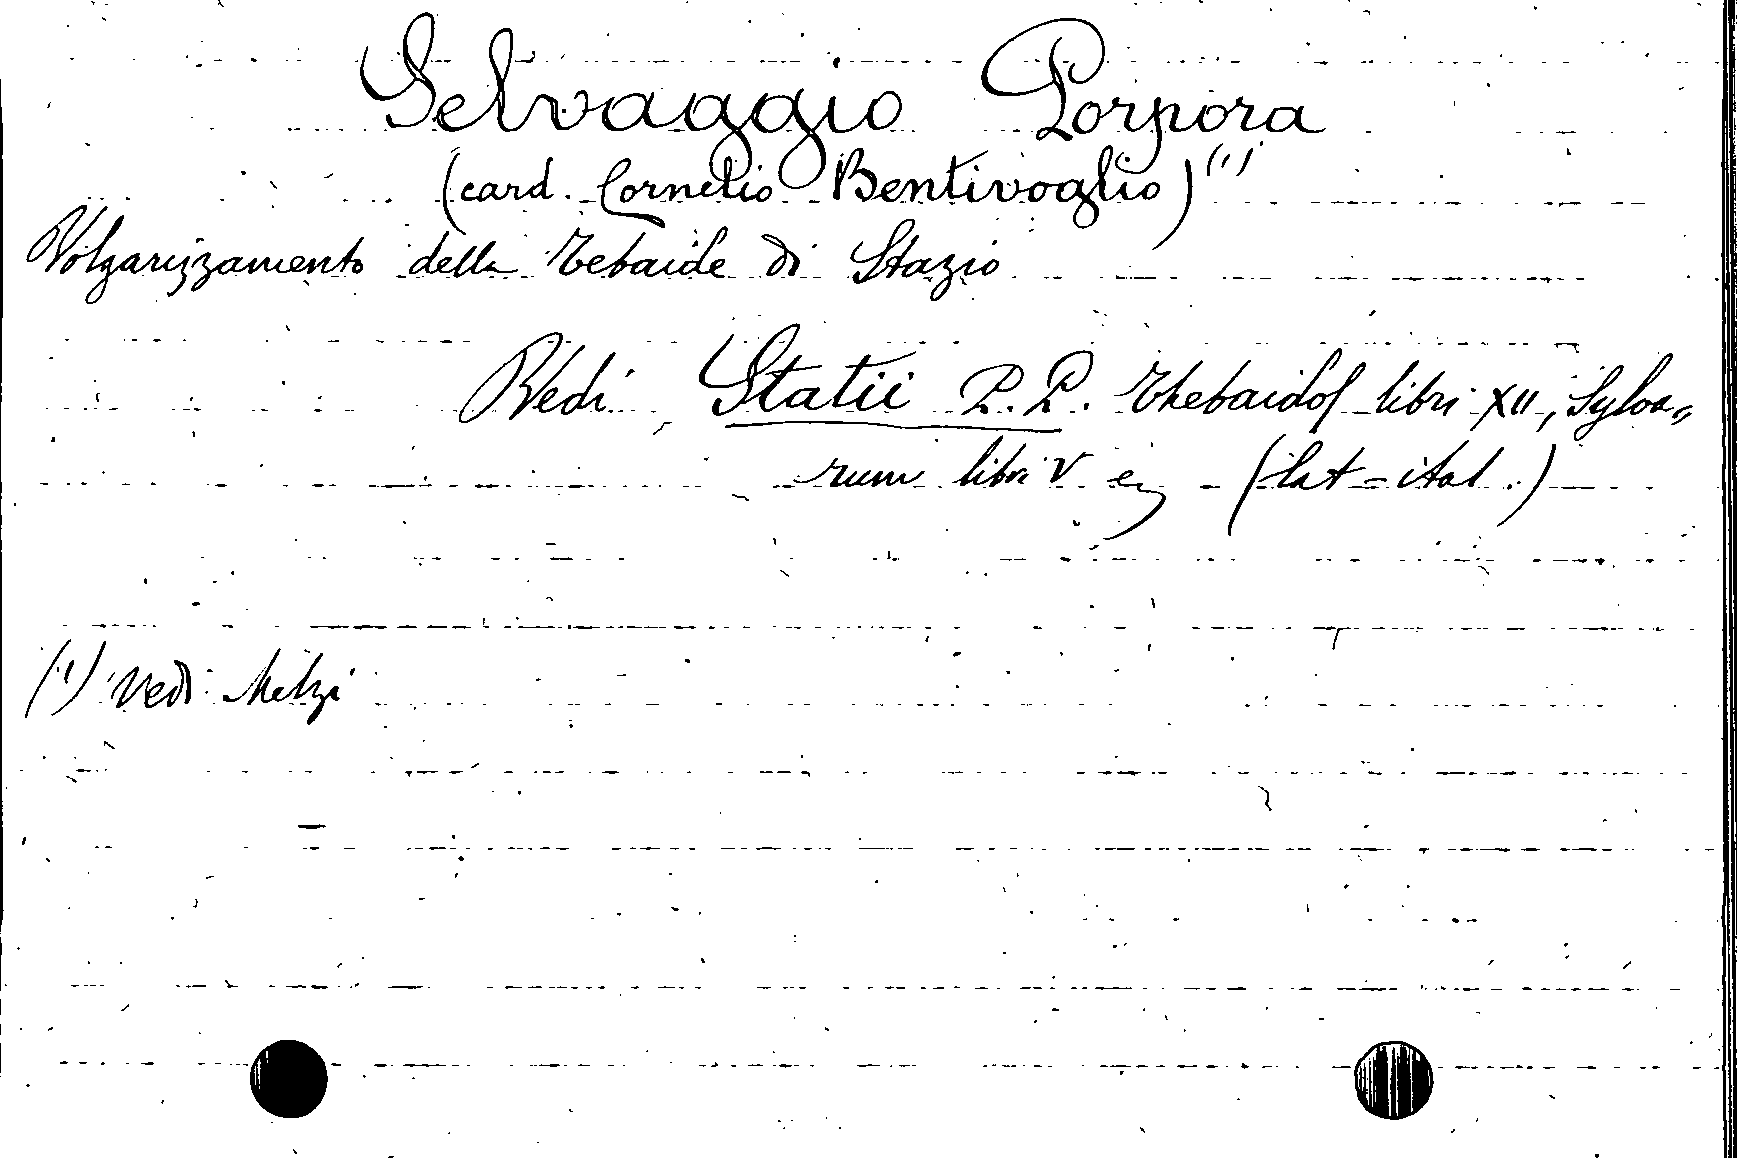 Selvaggio Porpora
(card. Cornelio Bentivoglio) (1)
Volgarizzamento della Tebaide di Stazio
Vedi Statii P. P. Thebaidos libri XII, Sylva=
rum libri V (lat = ital.)
(1) Vedi Melzi